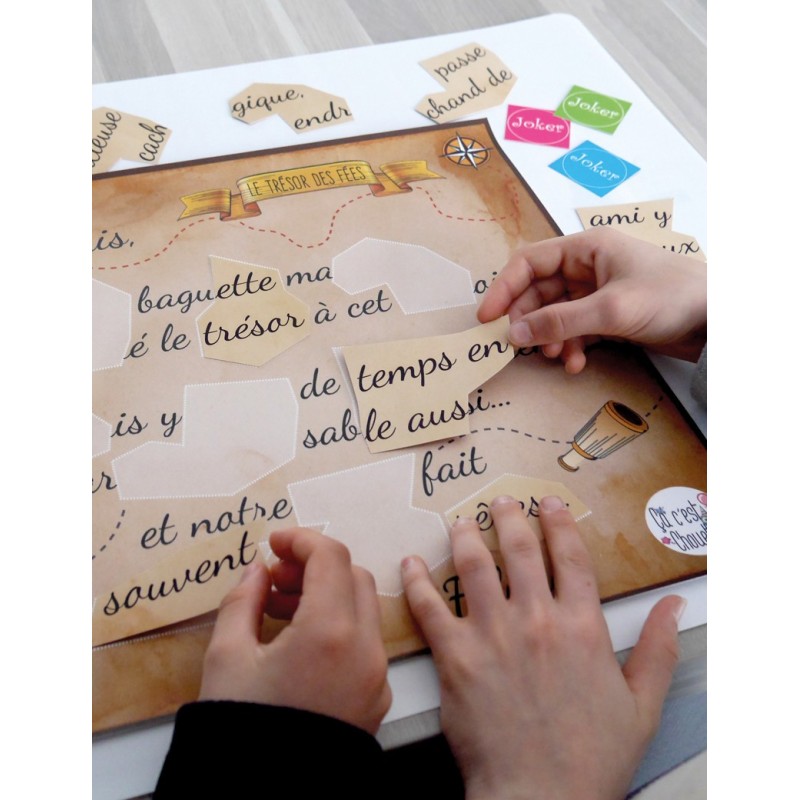 ieuse
cach
gique,
endr
passe
chand de
Joker
Joker
Joker
ami y
ux
LE TRÉSOR DES FÉES
is,
baguette ma
é le trésor à cet
de temps en
is y
sable aussi...
fait
et notre
souvent
Ça c'est